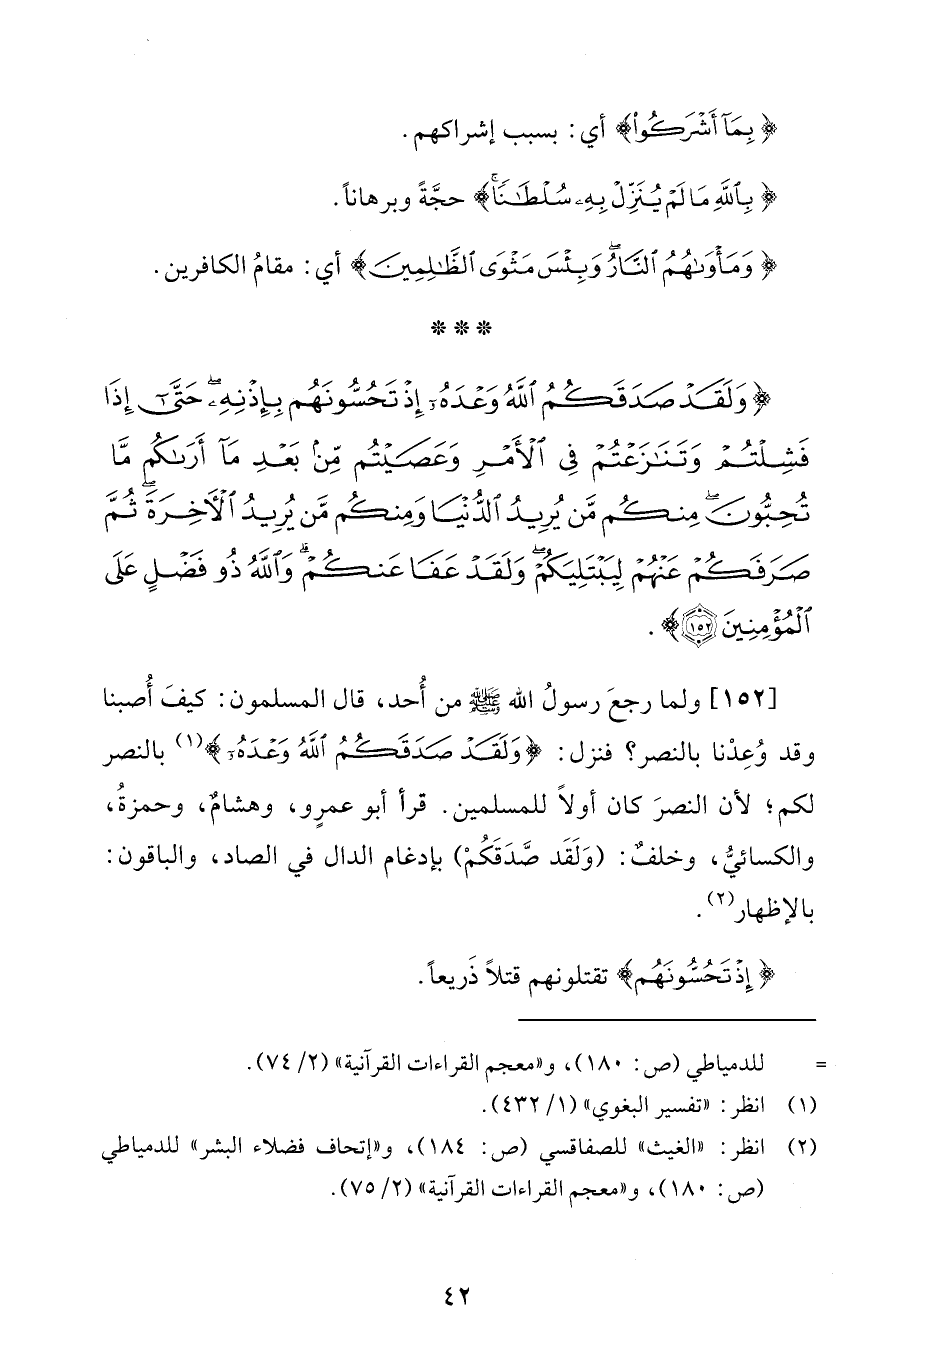 ﴿بِمَآ أَشْرَكُوا۟﴾ أي: بسبب إشراكهم.
﴿بِٱللَّهِ مَا لَمْ يُنَزِّلْ بِهِۦ سُلْطَـٰنًاۚ﴾ حجَّةً وبرهاناً.
﴿وَمَأْوَىٰهُمُ ٱلنَّارُۖ وَبِئْسَ مَثْوَى ٱلظَّـٰلِمِينَ﴾ أي: مقامُ الكافرين.
* * *
﴿وَلَقَدْ صَدَقَكُمُ ٱللَّهُ وَعْدَهُۥٓ إِذْ تَحُسُّونَهُم بِإِذْنِهِۦۖ حَتَّىٰٓ إِذَا
فَشِلْتُمْ وَتَنَـٰزَعْتُمْ فِى ٱلْأَمْرِ وَعَصَيْتُم مِّنۢ بَعْدِ مَآ أَرَىٰكُم مَّا
تُحِبُّونَۖ مِنكُم مَّن يُرِيدُ ٱلدُّنْيَا وَمِنكُم مَّن يُرِيدُ ٱلْأَخِرَةَۖ ثُمَّ
صَرَفَكُمْ عَنْهُمْ لِيَبْتَلِيَكُمْۖ وَلَقَدْ عَفَا عَنكُمْۗ وَٱللَّهُ ذُو فَضْلٍ عَلَى
ٱلْمُؤْمِنِينَ ١٥٢﴾.
[١٥٢] ولما رجعَ رسولُ الله ﷺ من أُحد، قال المسلمون: كيفَ أُصبنا
وقد وُعِدْنا بالنصر؟ فنزل: ﴿وَلَقَدْ صَدَقَكُمُ ٱللَّهُ وَعْدَهُۥٓ﴾(١) بالنصر
لكم؛ لأن النصرَ كان أولاً للمسلمين. قرأ أبو عمرٍو، وهشامٌ، وحمزةُ،
والكسائيُّ، وخلفٌ: (وَلَقَد صَّدَقَكُمْ) بإدغام الدال في الصاد، والباقون:
بالإظهار(٢).
﴿إِذْ تَحُسُّونَهُم﴾ تقتلونهم قتلاً ذَريعاً.
= للدمياطي (ص: ١٨٠)، و«معجم القراءات القرآنية» (٢/ ٧٤).
(١) انظر: «تفسير البغوي» (١/ ٤٣٢).
(٢) انظر: «الغيث» للصفاقسي (ص: ١٨٤)، و«إتحاف فضلاء البشر» للدمياطي
(ص: ١٨٠)، و«معجم القراءات القرآنية» (٢/ ٧٥).
٤٢